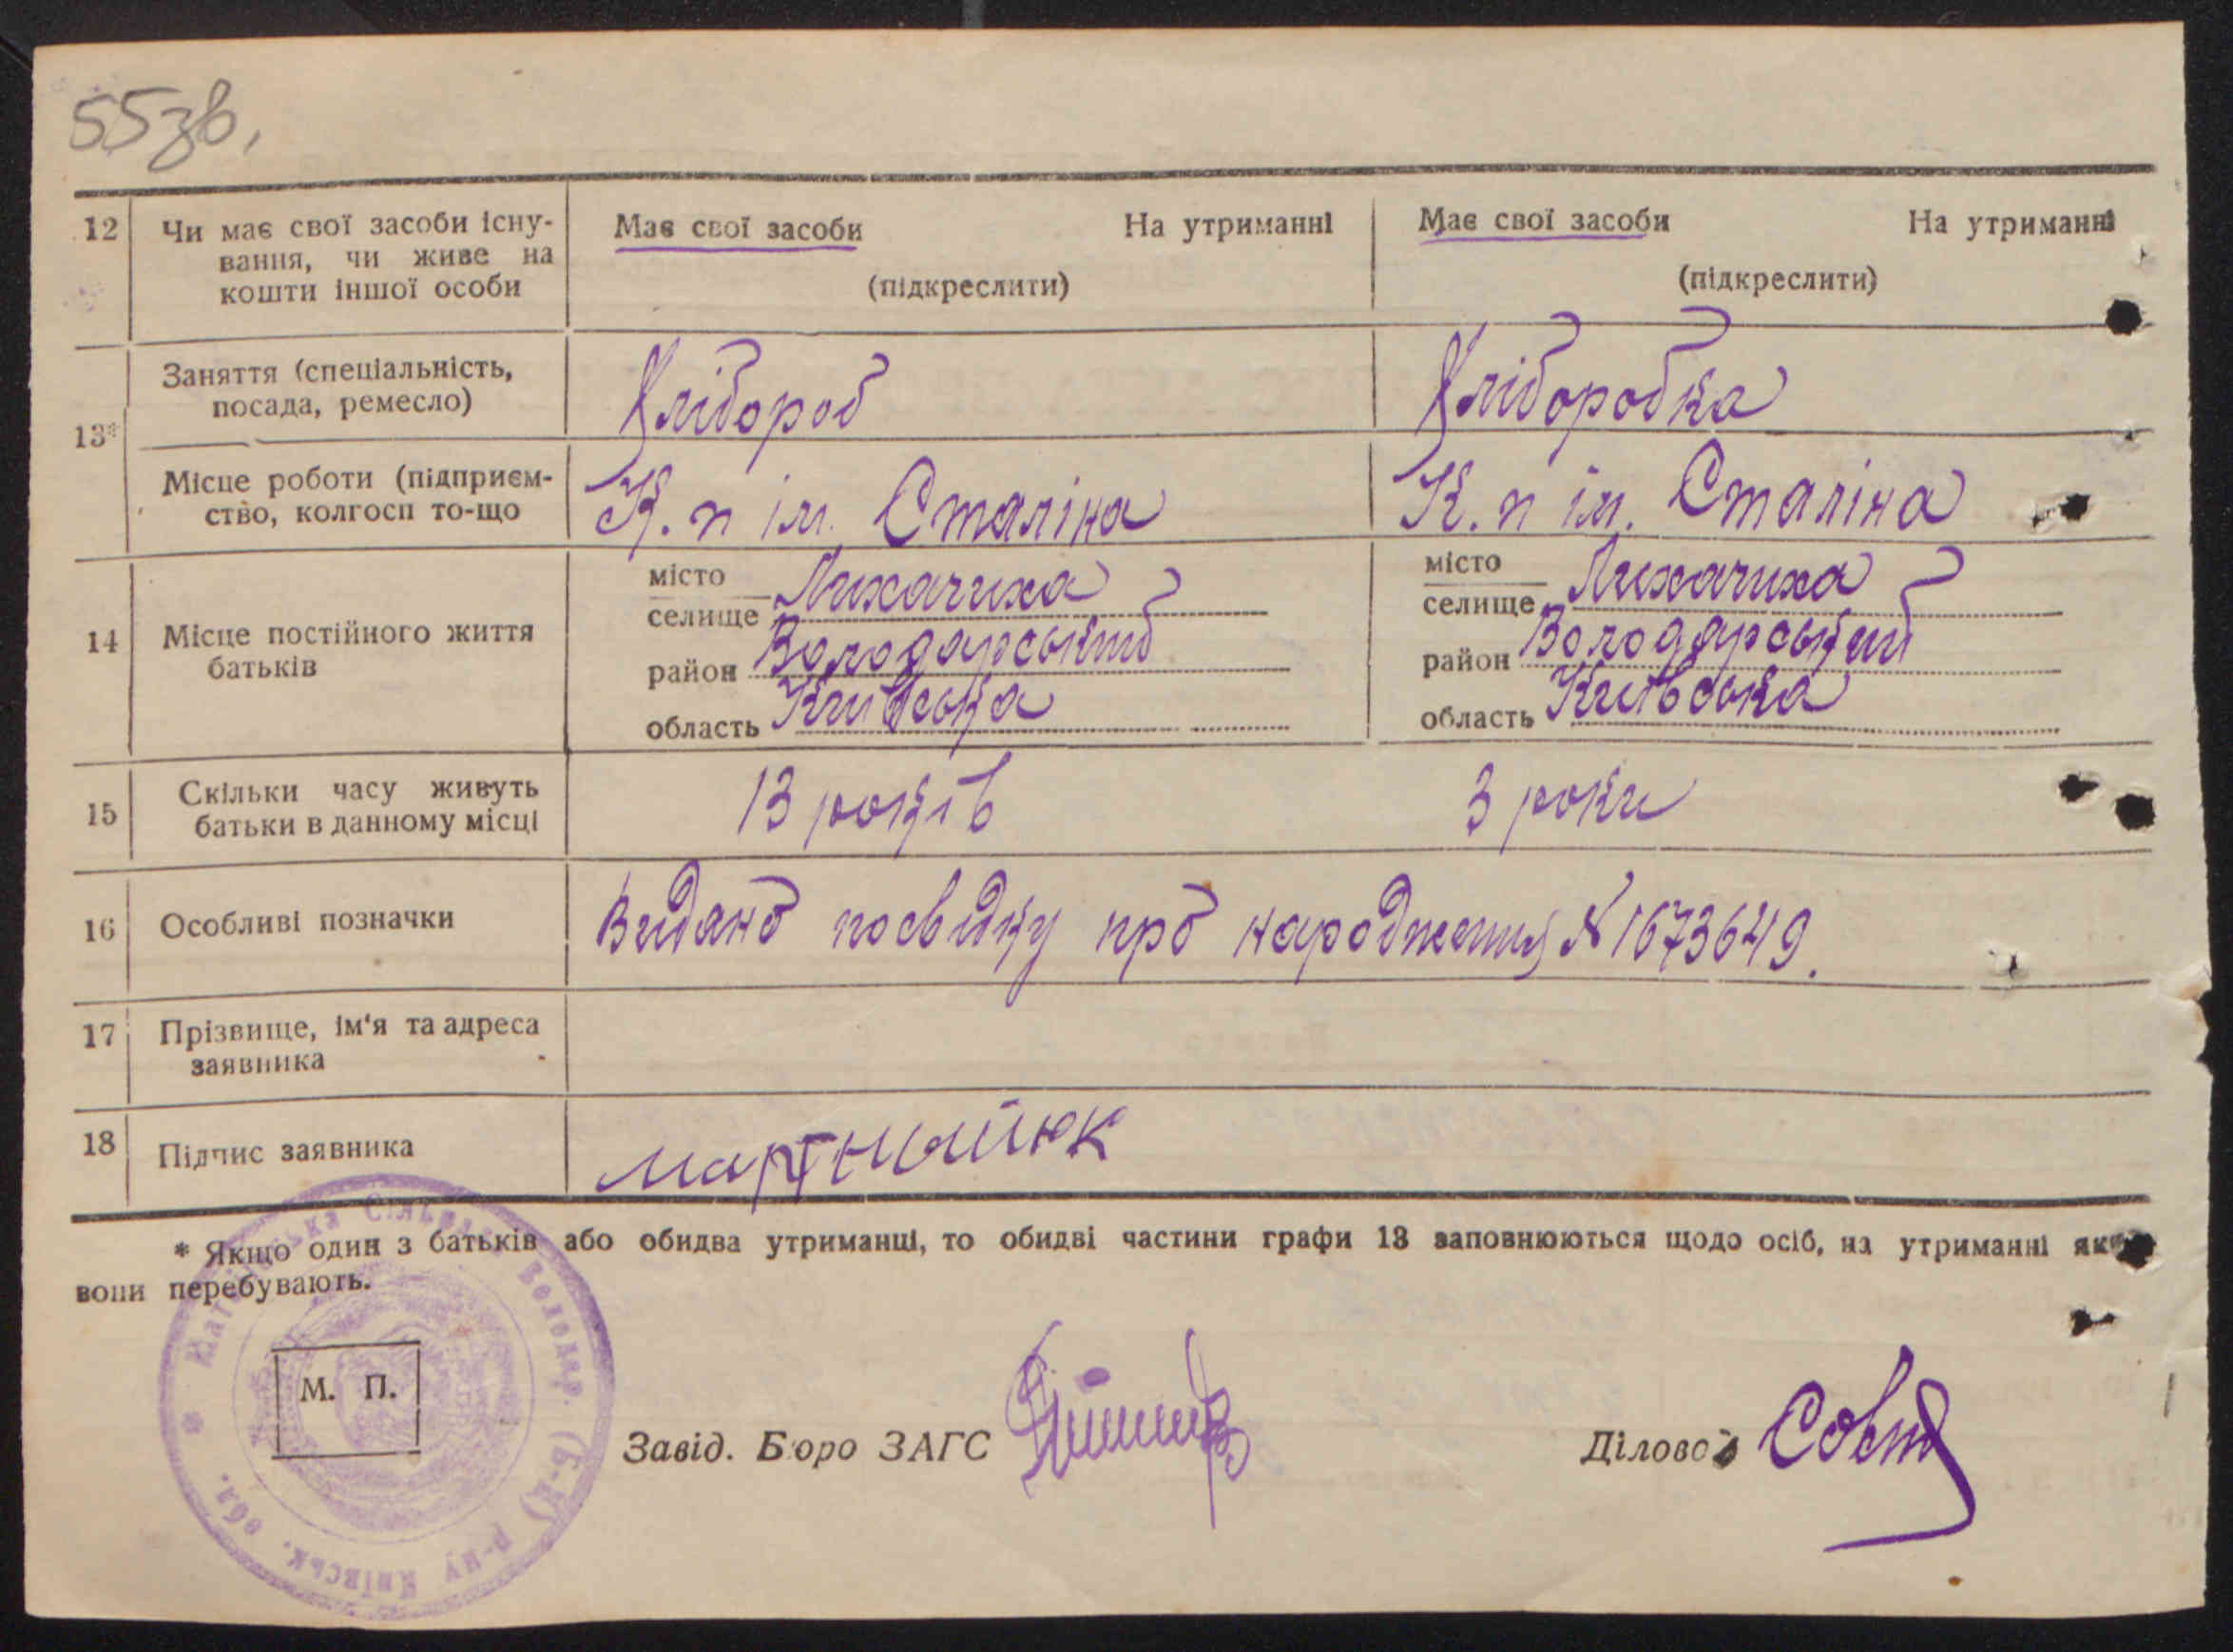 55зв.
12 Чи має свої засоби існу-
вання, чи живе на
кошти іншої особи
Має свої засоби На утриманні
(підкреслити)
Має свої засоби На утриманні
(підкреслити)
13*
Заняття (спеціальність,
посада, ремесло)
Хлібороб
Хліборобка
Місце роботи (підприєм-
ство, колгосп то-що
К. п ім. Сталіна
К. п ім. Сталіна
14 Місце постійного життя
батьків
місто
селище Лихачиха
район Володарський
область Київська
місто
селище Лихачиха
район Володарський
область Київська
15 Скільки часу живуть
батьки в данному місці
13 років
3 роки
16 Особливі позначки
Видано посвідку про народження № 1673649.
17 Прізвище, ім'я та адреса
заявника
18 Підпис заявника
* Якщо один з батьків або обидва утриманці, то обидві частини графи 13 заповнюються щодо осіб, на утриманні яких
вони перебувають.
Сільрада Володар. (Б-Ц) р-ну Київськ. обл.
М. П.
Завід. Бюро ЗАГС
Діловод